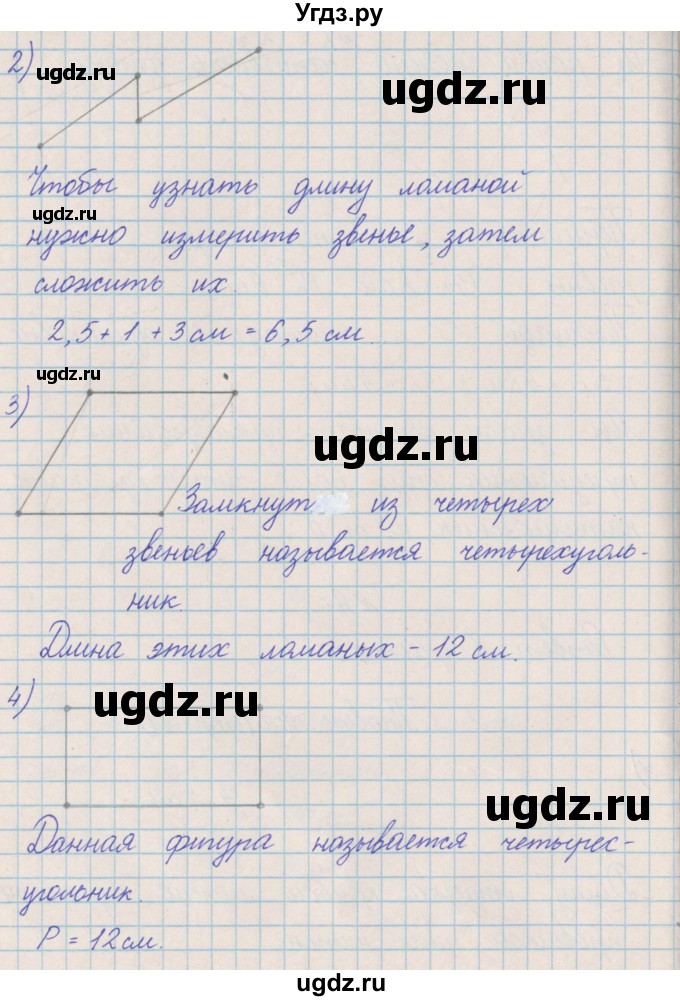 Угдз.ру
2)
ugdz.ru
ugdz.ru
Чтобы узнать длину ломаной
ugdz.ru
нужно измерить звенье, затем
сложить их.
2,5 + 1 + 3 см = 6,5 см.
ugdz.ru
3)
ugdz.ru
Замкнут из четырех
звеньев называется четырехуголь-
ник.
Длина этих ломаных - 12 см.
4)
ugdz.ru
ugdz.ru
Данная фигура называется четырес-
угольник.
P = 12 см.
ugdz.ru